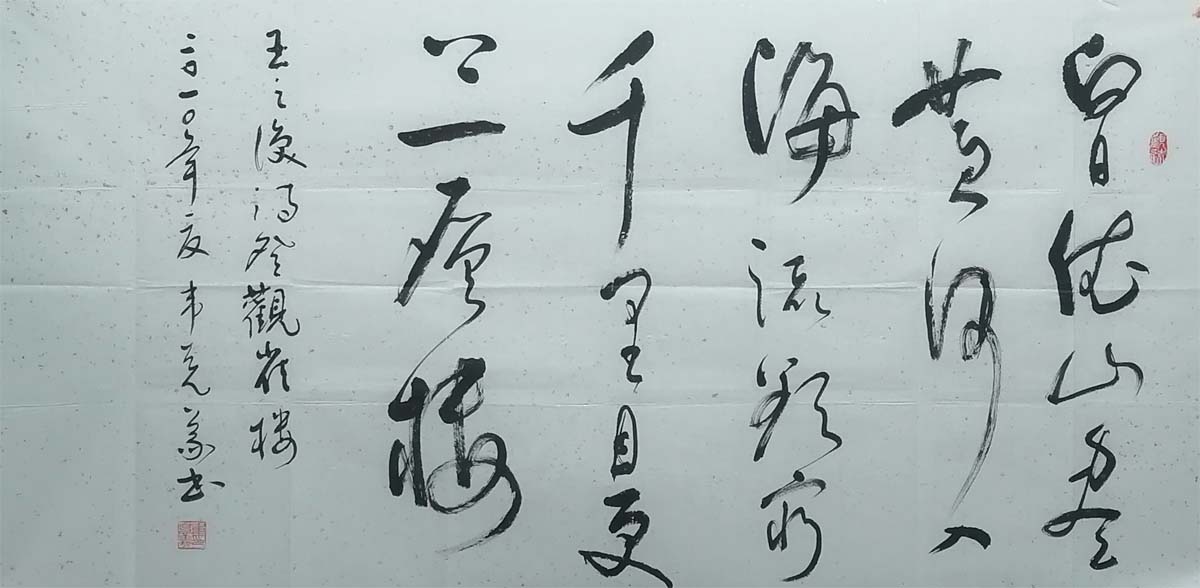 白日依山盡
黄河入
海流欲穷
千里目更
上一层楼
王之涣诗登觀雀楼
二〇一〇年夏韦克義书